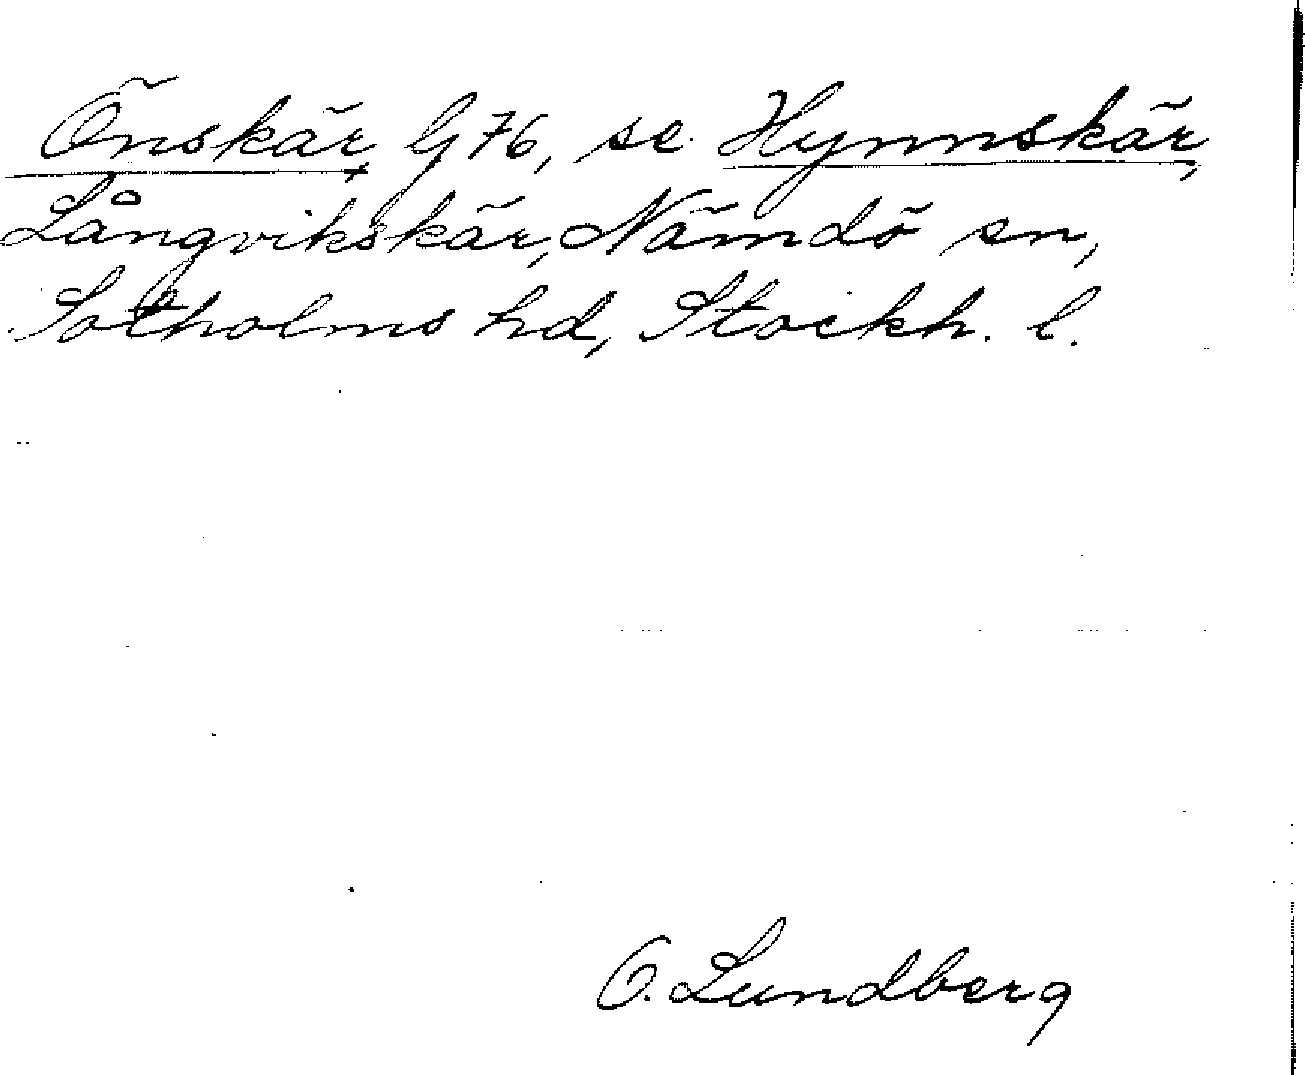 Önskär, G 76, se Hynnskär,
Långvikskär, Nämdö sn,
Sotholms hd, Stockh. l.
O. Lundberg